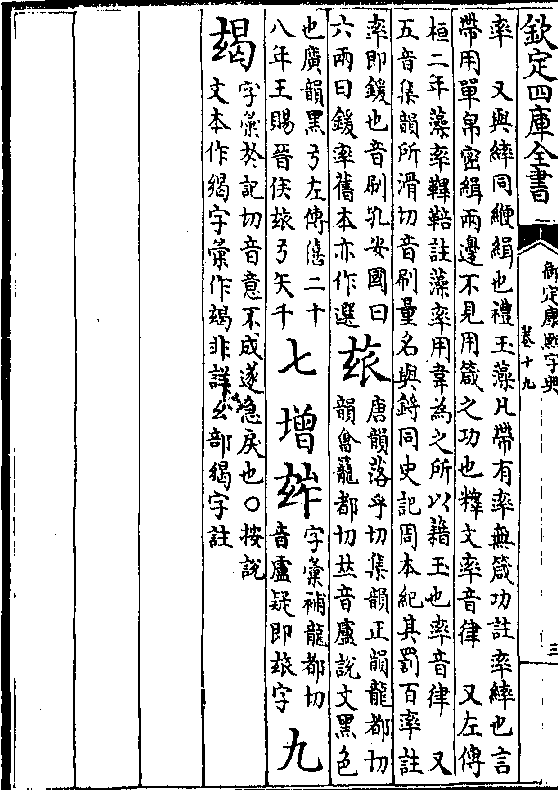 欽定四庫全書
御定康熙字典
卷十九
三
率　又與繂同緶緝也禮玉藻凡帶有率無箴功註率繂也言
帶用單帛密緝兩邊不見用箴之功也釋文率音律　又左傳
桓二年藻率鞞鞛註藻率用韋為之所以藉玉也率音律　又
五音集韻所滑切音刷量名與鋝同史記周本紀其罰百率註
率即鍰也音刷孔安國曰
六兩曰鍰率舊本亦作選
玈
唐韻落乎切集韻正韻龍都切
韻會龍都切𠀤音盧說文黑色
也廣韻黑弓左傳僖二十
八年王賜晉侯玈弓矢千
七
增
字彙補龍都切
音盧疑即玈字
九
字彙於記切音意不成遂急戾也〇按說
文本作字彙作非詳幺部字註